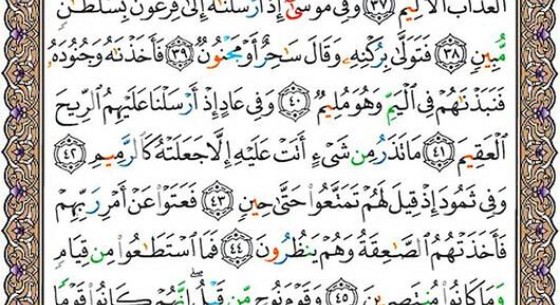 ٱلْعَذَابَ ٱلْأَلِيمَ ٣٧ وَفِى مُوسَىٰٓ إِذْ أَرْسَلْنَٰهُ إِلَىٰ فِرْعَوْنَ بِسُلْطَٰنٍ
مُّبِينٍ ٣٨ فَتَوَلَّىٰ بِرُكْنِهِۦ وَقَالَ سَٰحِرٌ أَوْ مَجْنُونٌ ٣٩ فَأَخَذْنَٰهُ وَجُنُودَهُۥ
فَنَبَذْنَٰهُمْ فِى ٱلْيَمِّ وَهُوَ مُلِيمٌ ٤٠ وَفِى عَادٍ إِذْ أَرْسَلْنَا عَلَيْهِمُ ٱلرِّيحَ
ٱلْعَقِيمَ ٤١ مَا تَذَرُ مِن شَىْءٍ أَتَتْ عَلَيْهِ إِلَّا جَعَلَتْهُ كَٱلرَّمِيمِ ٤٢
وَفِى ثَمُودَ إِذْ قِيلَ لَهُمْ تَمَتَّعُوا۟ حَتَّىٰ حِينٍ ٤٣ فَعَتَوْا۟ عَنْ أَمْرِ رَبِّهِمْ
فَأَخَذَتْهُمُ ٱلصَّٰعِقَةُ وَهُمْ يَنظُرُونَ ٤٤ فَمَا ٱسْتَطَٰعُوا۟ مِن قِيَامٍ
وَمَا كَانُوا۟ مُنتَصِرِينَ ٤٥ وَقَوْمَ نُوحٍ مِّن قَبْلُ ۖ إِنَّهُمْ كَانُوا۟ قَوْمًا